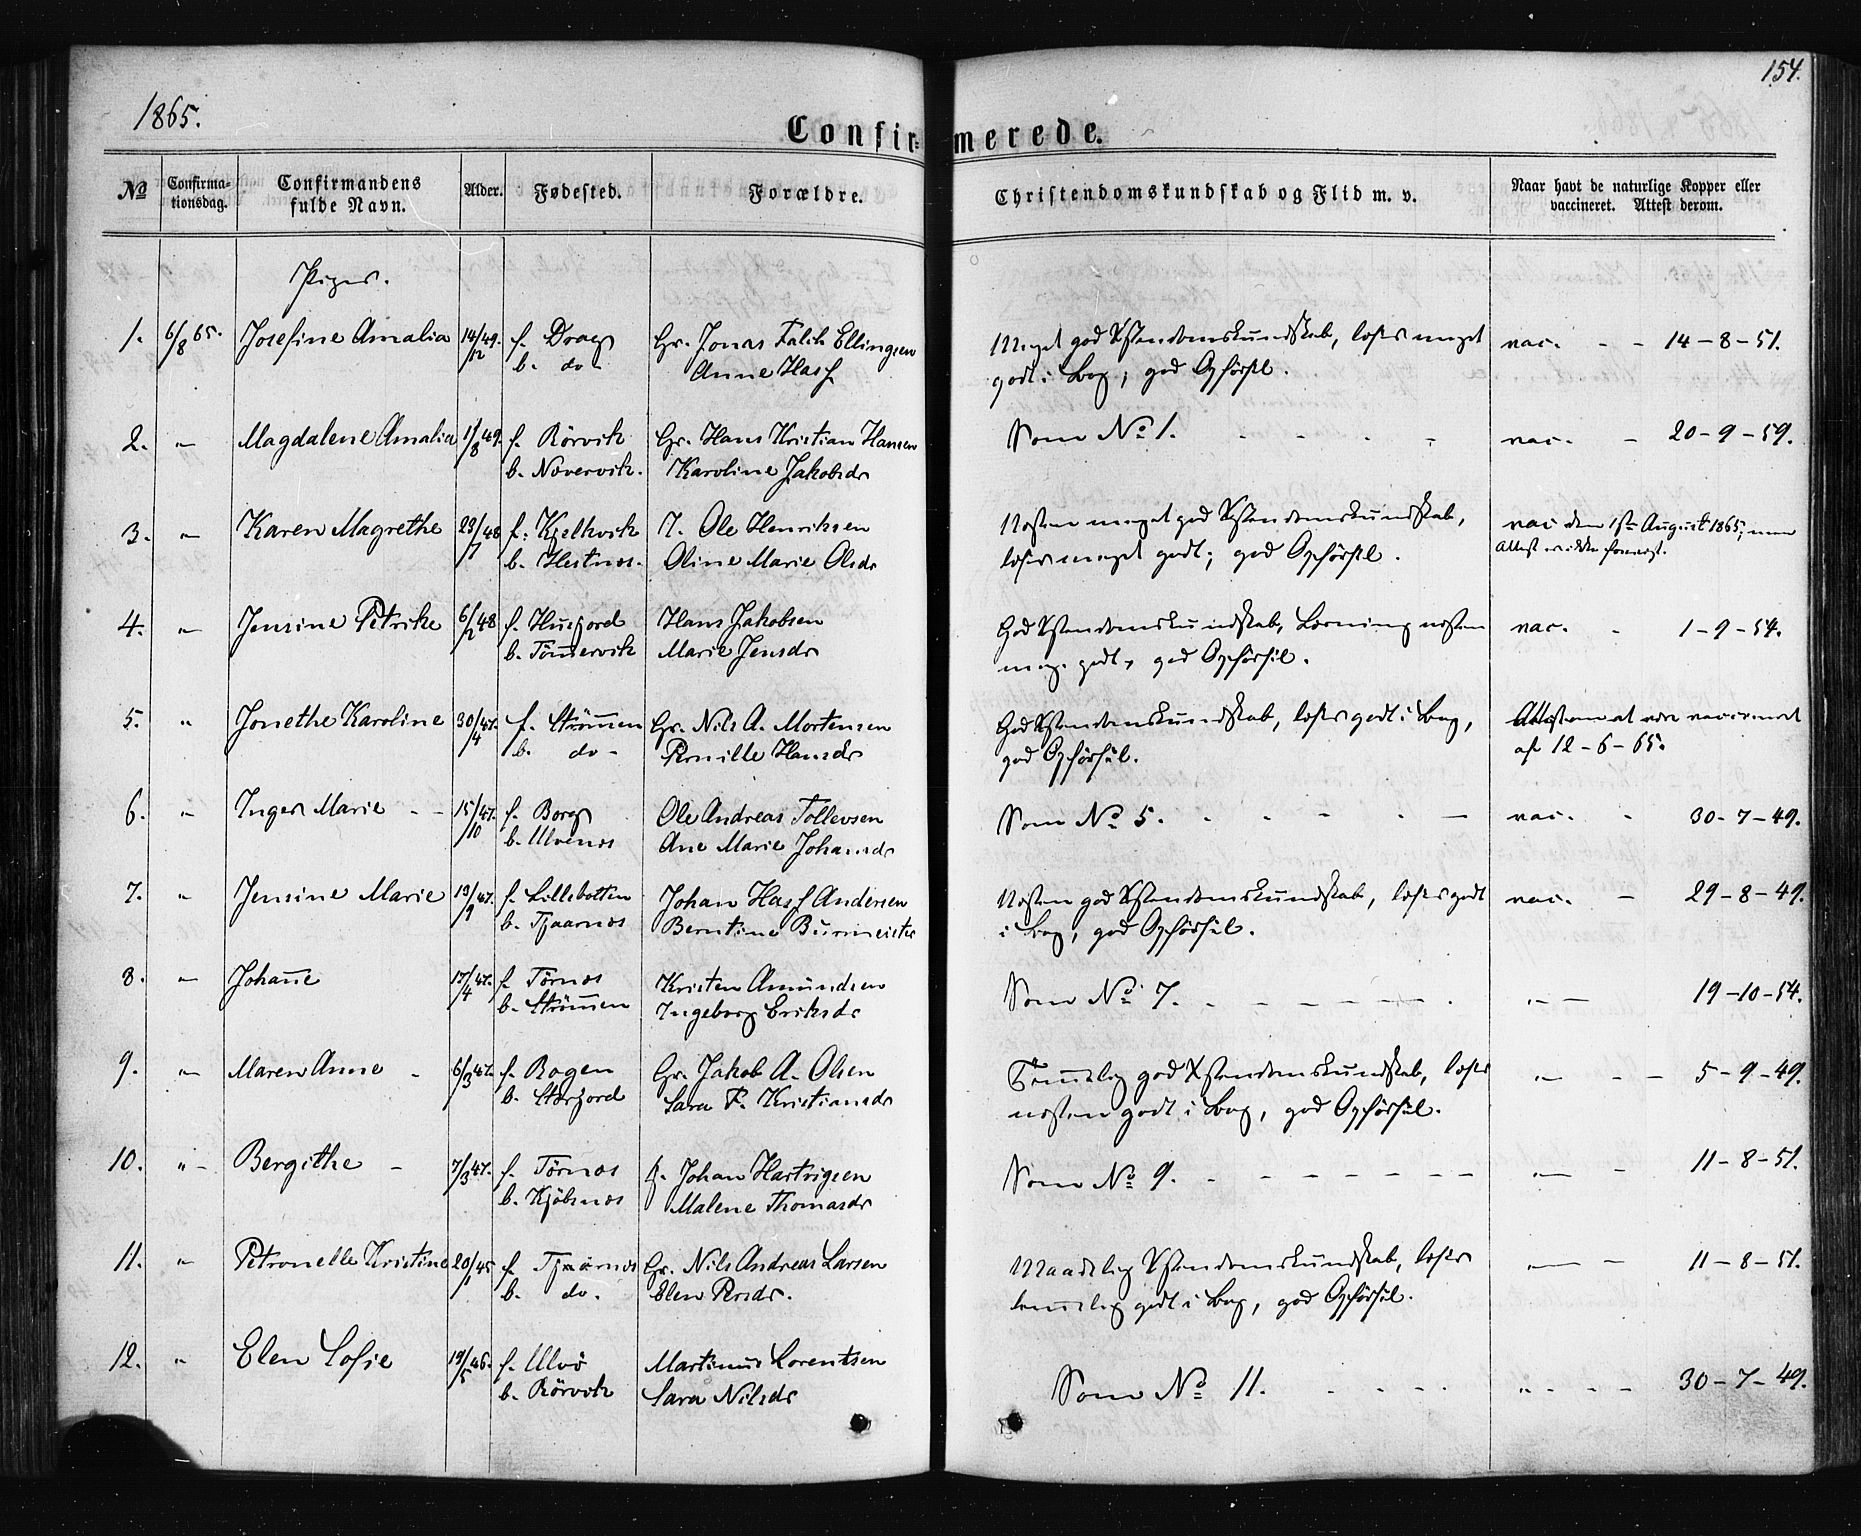 154.
1865.
Confirmerede.
No
Confirma-
tionsdag.
Confirmandens
fulde Navn.
Alder.
Fødested.
Forældre.
Christendomskundskab og Flid m. v.
Naar havt de naturlige Kopper eller
vaccineret. Attest derom.
Piger.
1. 6/8 65. Josefine Amalia 14/12 49. f. Drag Gr. Jonas Falch Ellingsen Meget god Xstendomskundskab, læser meget vac. - - 14-8-51.
b. do- Anne Hass godt i Bog, god Opførsel.
2. „ Magdalene Amalia 1/8 49. f. Rörvik Gr. Hans Kristian Hansen Som No 1. - - - - vac. - 20-9-59.
b. Növervik. Karoline Jakobsdr
3. „ Karen Magrethe 23/7 48 f. Kjelkvik I. Ole Henriksen Næsten meget god Xstendomskundskab, vac den 1ste August 1865, men
b. Hestnæs. Oline Marie Olsdr læser meget godt; god Opförsel. Attest er ikke forevist.
4. „ Jensine Petrike 6/2 48 f. Husfjord Hans Jakobsen God Xstendomskundskab, Læsning næsten vac. - 1-9-54.
b. Tömervik Marie Jensdr meg. godt, god Opförsel.
5. „ Jonethe Karoline 30/4 47. f. Strömen Gr. Nils A. Mortensen God Xstendomskundskab, læser godt i Bog, Attest om at være vaccineret
b. do- Pernille Hansdr god Opförsel. af 12-6-65.
6. „ Inger Marie - - 15/10 47. f. Borg Ole Andreas Tollevsen Som No 5. - - - - - vac. - 30-7-49.
b. Ulvenæs Ane Marie Johansdr
7. „ Jensine Marie 13/9 47. f. Lillebotten Johan Hass Andersen Næsten god Xstendomskundskab, læser godt vac. - 29-8-49.
b. Tjaarnæs Berntine Burmeister i Bog, god Opförsel.
8. „ Johane 17/4 47. f. Törnæs Kristen Amundsen Som No 7. - - - - - - „ - 19-10-54.
b. Strömen Ingeborg Eriksdr
9. „ Maren Anne - 6/3 47. f. Bogen Gr. Jakob A. Olsen Temelig god Xstendomskundskab, læser „ - - 5-9-49.
b. Storfjord Sara P. Kristiansdr næsten godt i Bog, god Opförsel.
10. „ Bergithe - 7/3 47. f. Törnæs f. Johan Hartvigsen Som No 9. - - - - - - - „ - 11-8-51.
b. Kjöbsnæs Malene Thomasdr
11. „ Petronelle Kristine 20/1 45 f. Tjaarnæs Gr. Nils Andreas Larsen Maadelig Xstendomskundskab, læser „ - 11-8-51.
b. do. Elen Persdr. temelig godt i Bog, god Opförsel.
12. „ Elen Sofie 19/5 46. f. Ulvö Martinus Lorentsen Som No 11. - - - - „ - - - 30-7-49.
b. Rörvik Sara Nilsdr